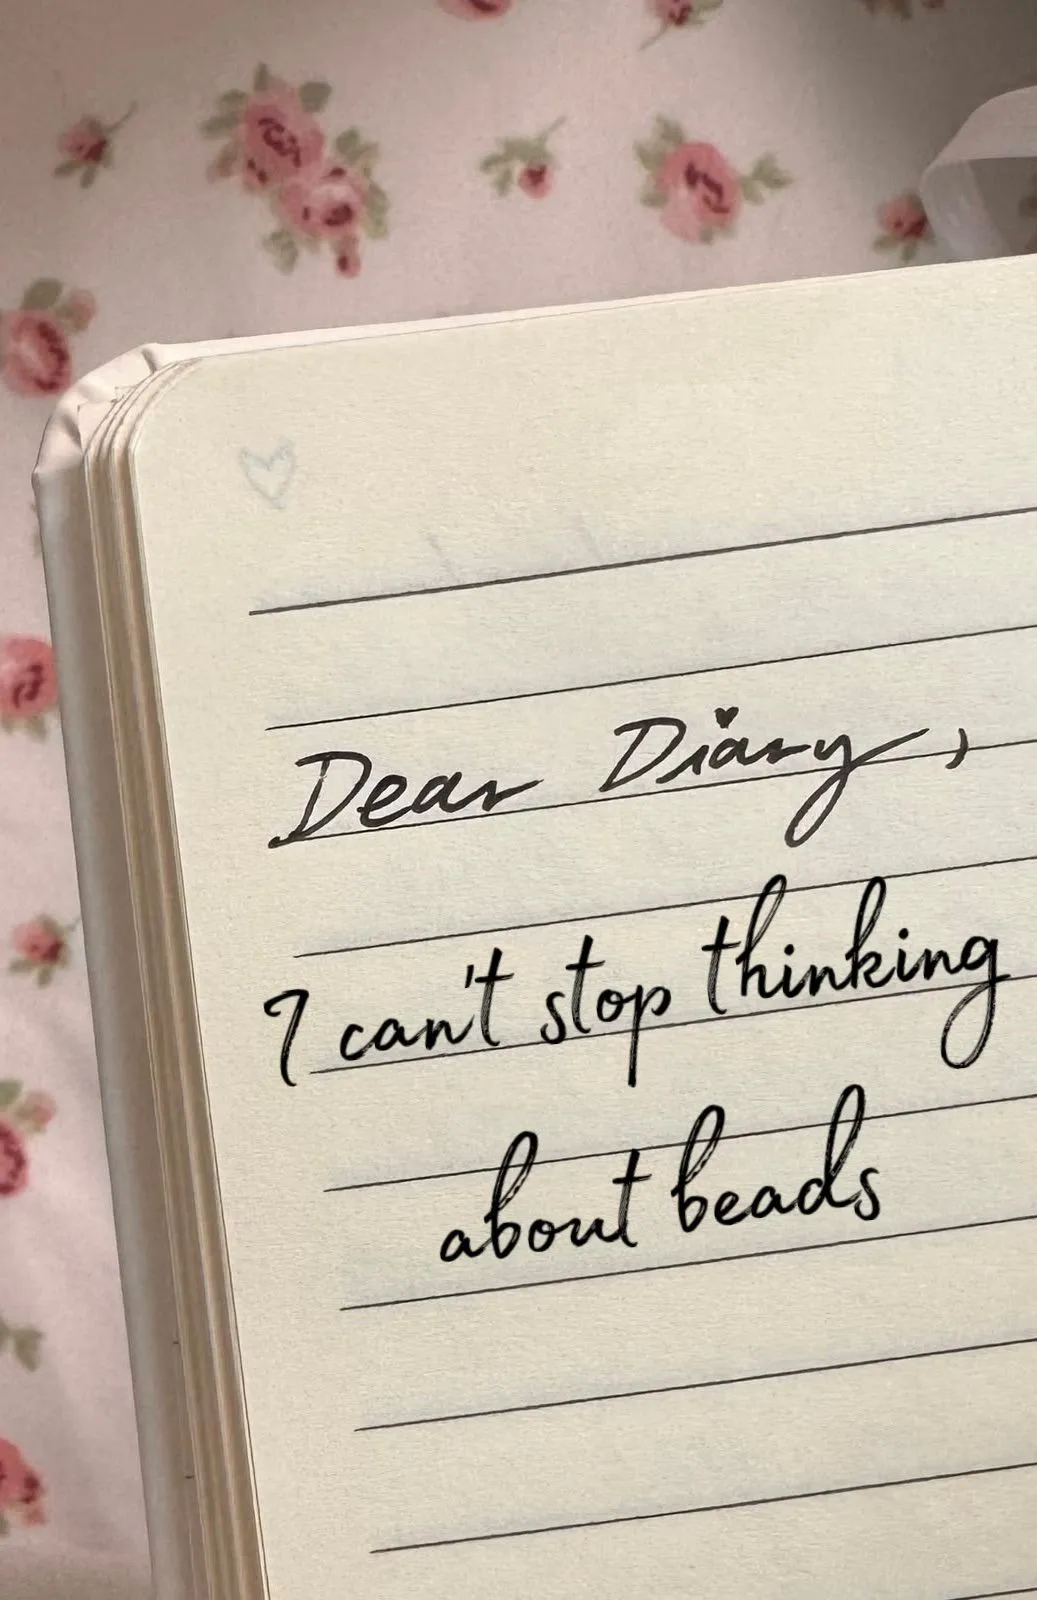 Dear Diary,
I can't stop thinking
about beads